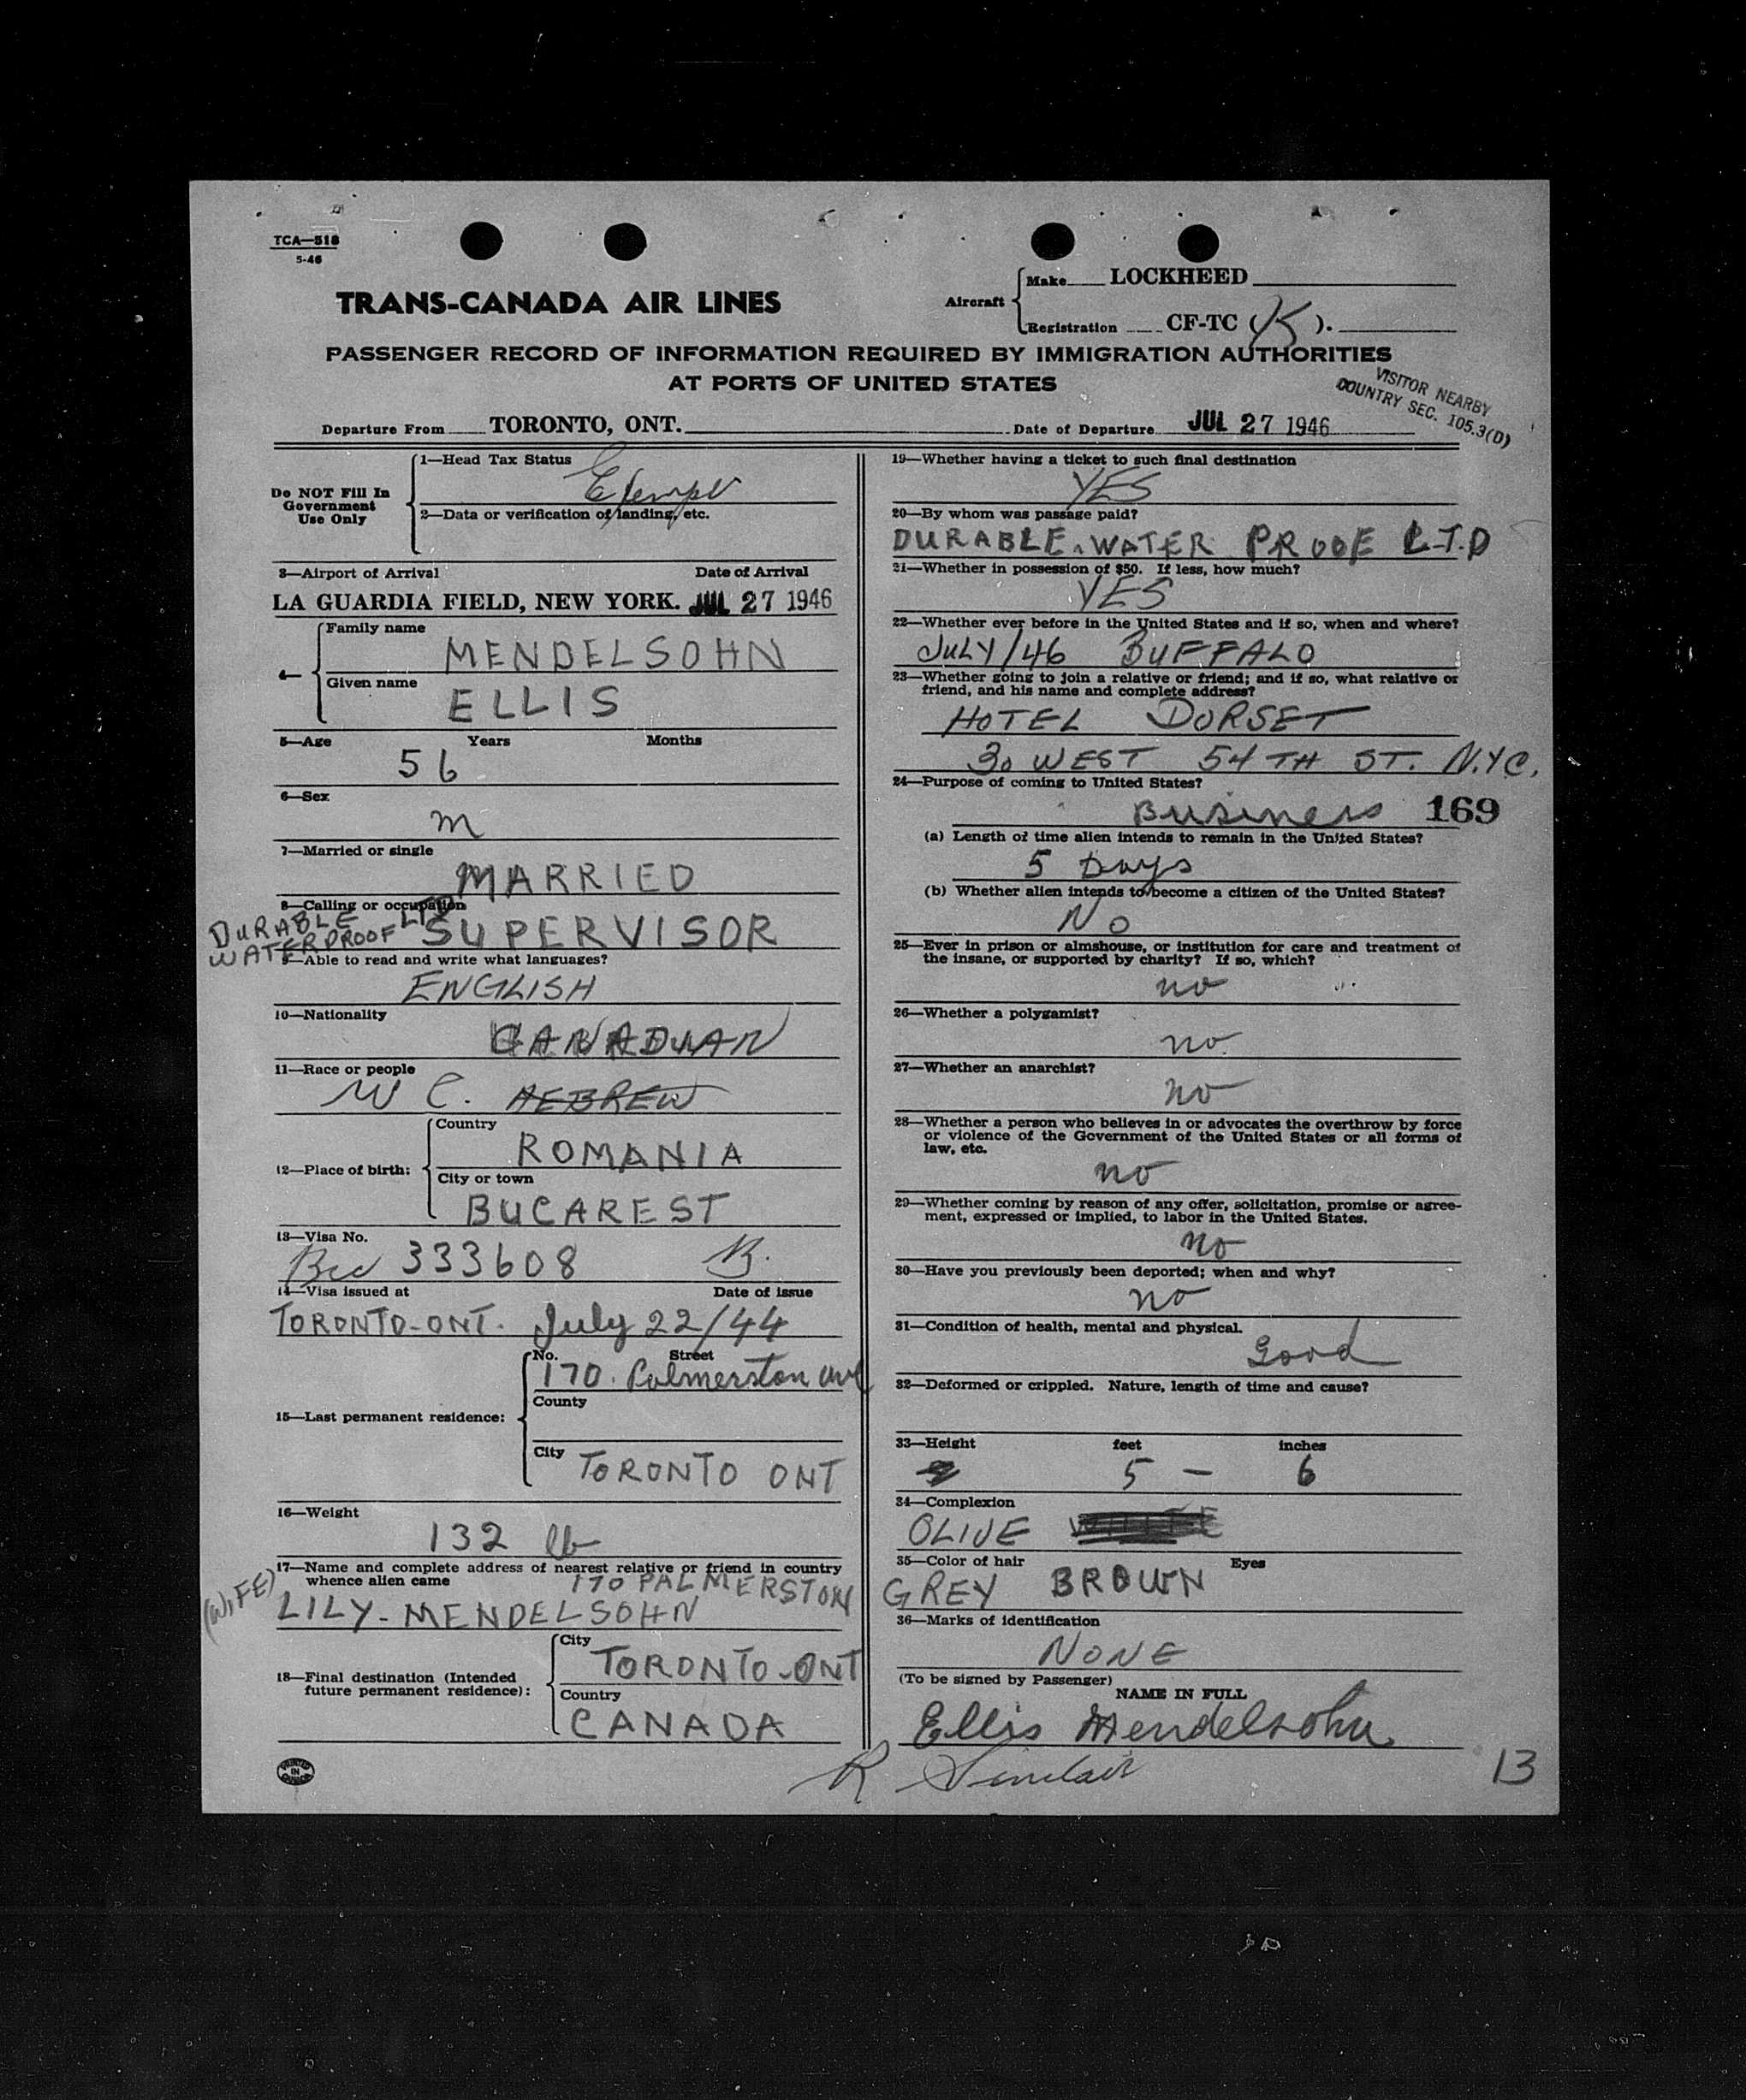 TCA—518
5-46
TRANS-CANADA AIR LINES
Aircraft
Make LOCKHEED
Registration CF-TC (K).
PASSENGER RECORD OF INFORMATION REQUIRED BY IMMIGRATION AUTHORITIES
AT PORTS OF UNITED STATES
VISITOR NEARBY
COUNTRY SEC. 105.3(D)
Departure From TORONTO, ONT. Date of Departure JUL 27 1946
Do NOT Fill In
Government
Use Only
1—Head Tax Status
Exempt
2—Data or verification of landing, etc.
3—Airport of Arrival Date of Arrival
LA GUARDIA FIELD, NEW YORK. JUL 27 1946
4—
Family name
MENDELSOHN
Given name
ELLIS
5—Age Years Months
56
6—Sex
M
7—Married or single
MARRIED
8—Calling or occupation
DURABLE LTD
WATERPROOF SUPERVISOR
9—Able to read and write what languages?
ENGLISH
10—Nationality
CANADIAN
11—Race or people
W C. HEBREW
12—Place of birth:
Country
ROMANIA
City or town
BUCAREST
13—Visa No.
Bcc 333608 B.
14—Visa issued at Date of issue
TORONTO-ONT. July 22/44
15—Last permanent residence:
No. Street
170. Palmerston Ave
County
City TORONTO ONT
16—Weight
132 lb
17—Name and complete address of nearest relative or friend in country
whence alien came
170 PALMERSTON
(WIFE) LILY-MENDELSOHN
18—Final destination (Intended
future permanent residence):
City
TORONTO-ONT
Country
CANADA
PRINTED
IN
CANADA
19—Whether having a ticket to such final destination
YES
20—By whom was passage paid?
DURABLE. WATER PROOF LTD
21—Whether in possession of $50. If less, how much?
YES
22—Whether ever before in the United States and if so, when and where?
JULY/46 BUFFALO
23—Whether going to join a relative or friend; and if so, what relative or
friend, and his name and complete address?
HOTEL DORSET
30 WEST 54TH ST. N.Y.C.
24—Purpose of coming to United States?
Business 169
(a) Length of time alien intends to remain in the United States?
5 Days
(b) Whether alien intends to become a citizen of the United States?
NO
25—Ever in prison or almshouse, or institution for care and treatment of
the insane, or supported by charity? If so, which?
no
26—Whether a polygamist?
no
27—Whether an anarchist?
no
28—Whether a person who believes in or advocates the overthrow by force
or violence of the Government of the United States or all forms of
law, etc.
no
29—Whether coming by reason of any offer, solicitation, promise or agree-
ment, expressed or implied, to labor in the United States.
no
30—Have you previously been deported; when and why?
no
31—Condition of health, mental and physical.
Good
32—Deformed or crippled. Nature, length of time and cause?
33—Height feet inches
5 — 6
34—Complexion
OLIVE WHITE
35—Color of hair Eyes
GREY BROWN
36—Marks of identification
NONE
(To be signed by Passenger)
NAME IN FULL
Ellis Mendelsohn
R Sinclair
13